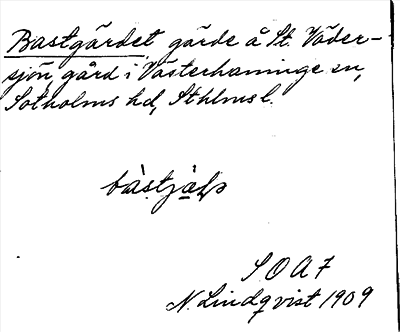 Bastgärdet, gärde å St. Väder-
sjön, gård i Västerhaninge sn,
Sotholms hd, Sthlms l.
SOAF
N. Lindqvist 1909